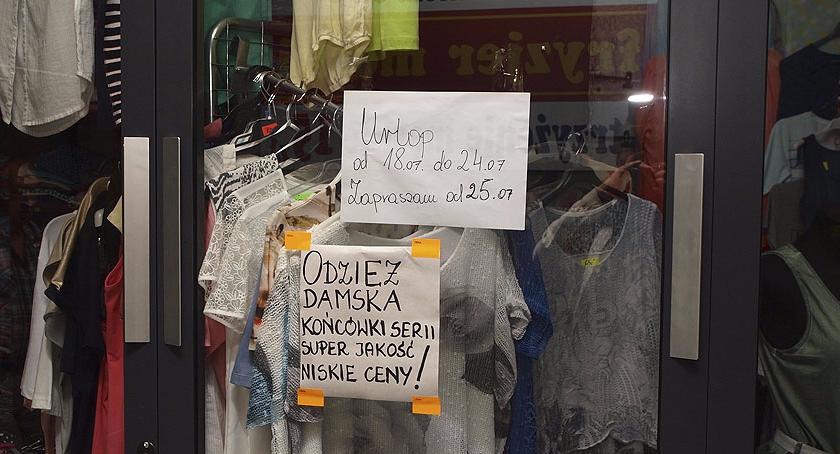 fryzier m
Urlop
od 18.07. do 24.07
Zapraszam od 25.07
ODZIEŻ
DAMSKA
KOŃCÓWKI SERII
SUPER JAKOŚĆ
NISKIE CENY!